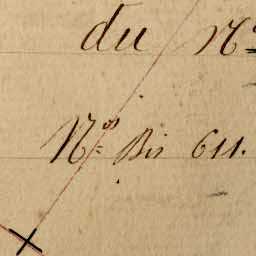 du N°
N°s Bis 611.